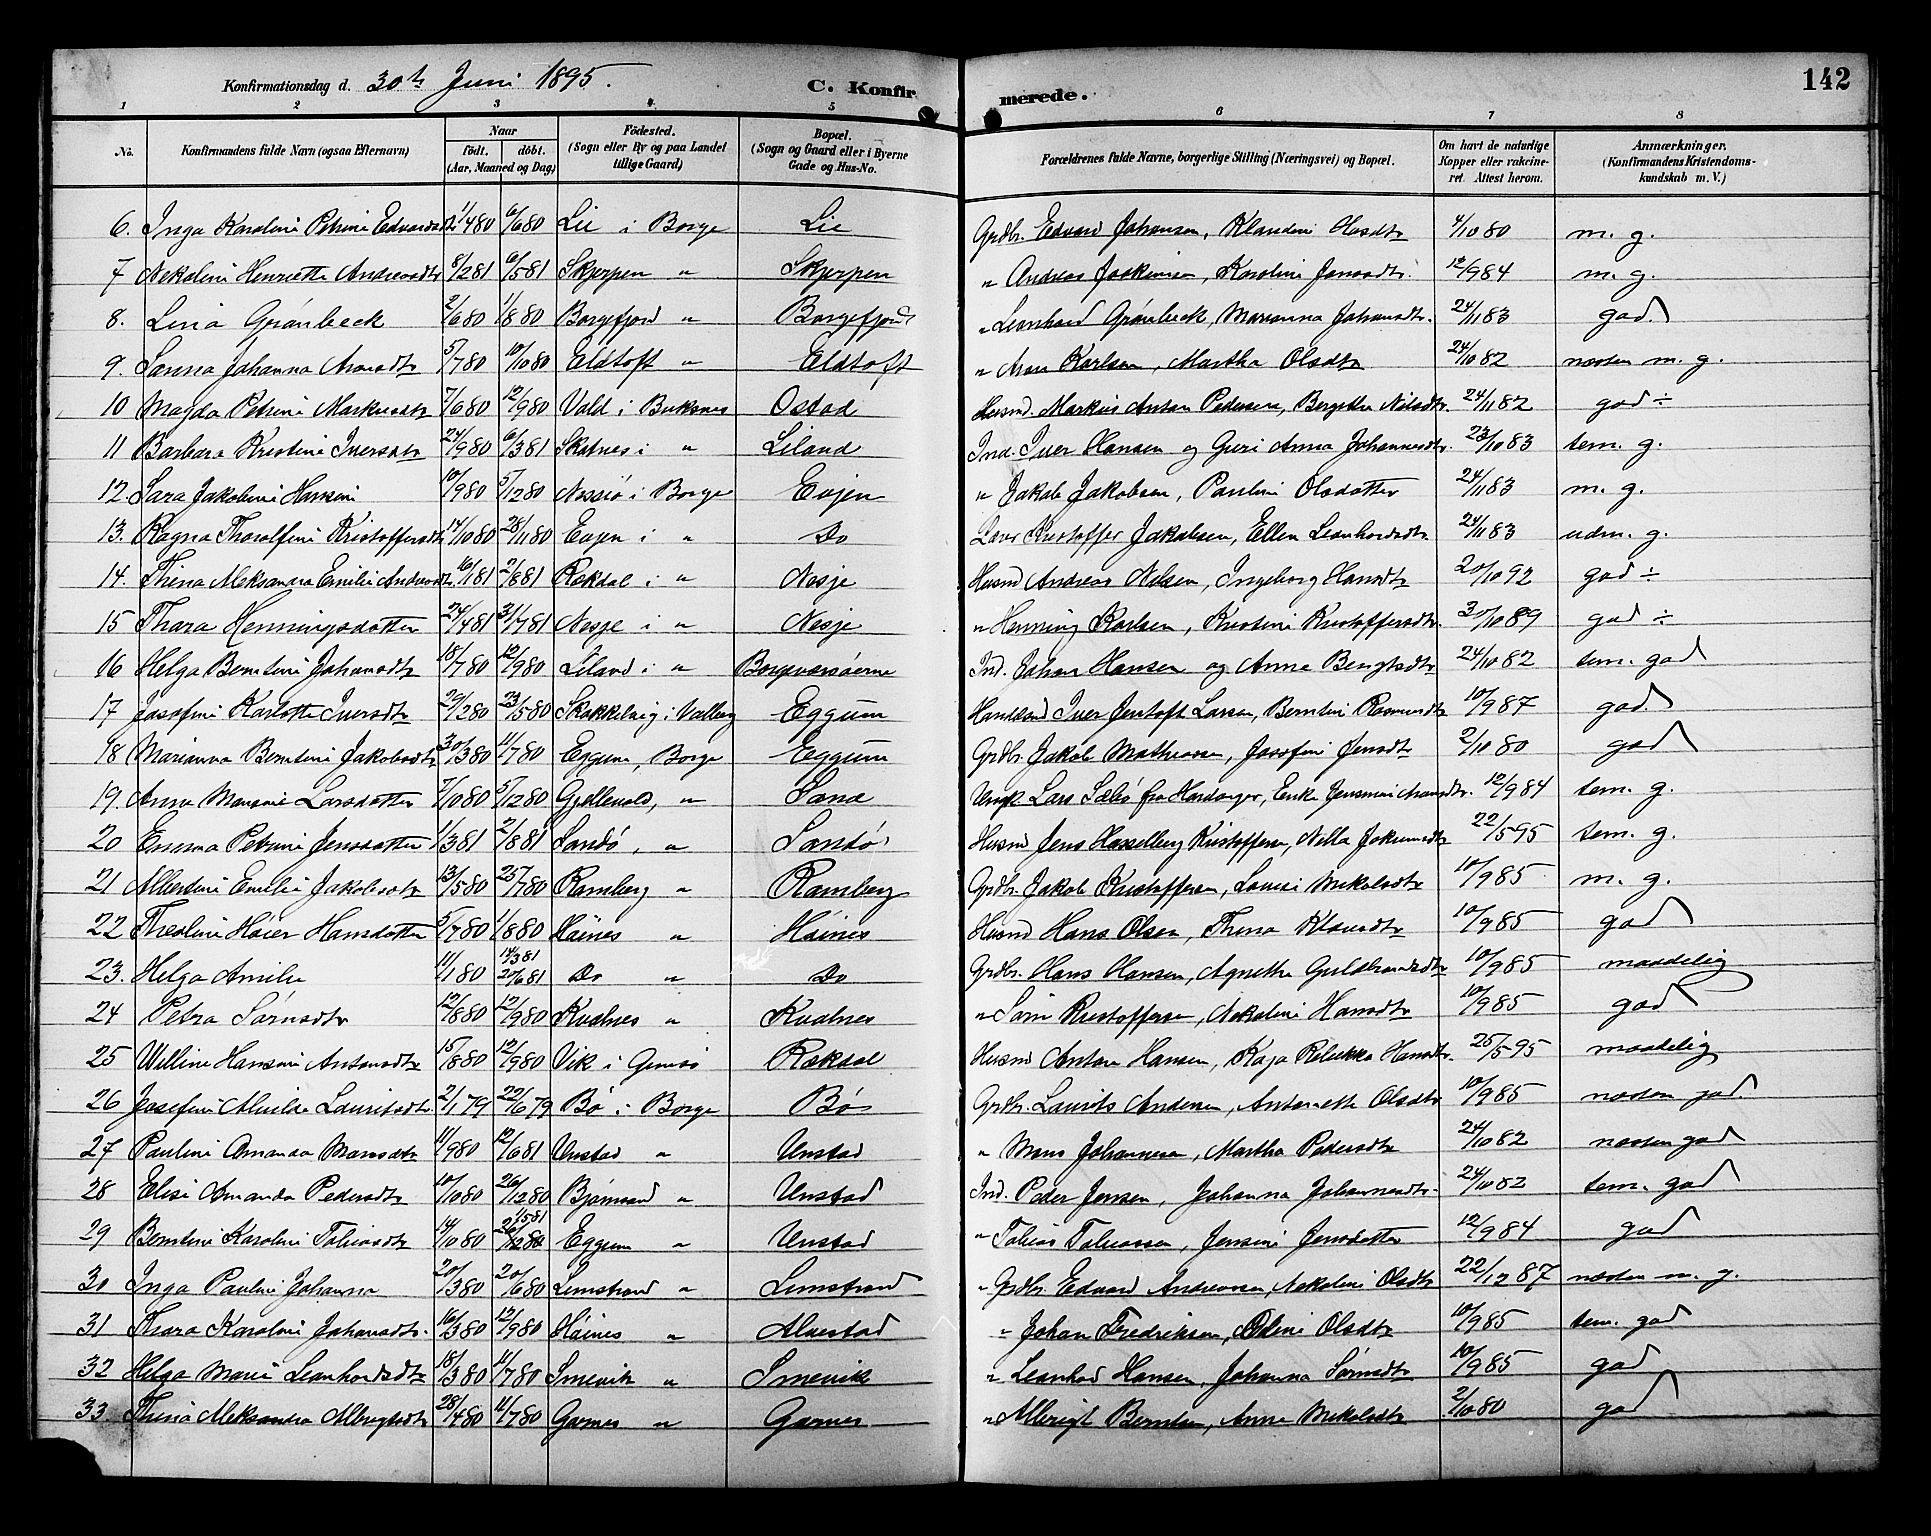 Konfirmationsdag d. 30te Juni 1895. C. Konfirmerede. 142
1 2 3 4 5 6 7 8
No. Konfirmandens fulde Navn (ogsaa Efternavn) Naar födt. döbt. (Aar, Maaned og Dag) Födested. (Sogn eller By og paa Landet tillige Gaard) Bopæl. (Sogn og Gaard eller i Byerne Gade og Hus-No. Forældrenes fulde Navne, borgerlige Stilling (Næringsvei) og Bopæl. Om havt de naturlige Kopper eller vakcineret. Attest herom. Anmærkninger. (Konfirmandens Kristendomskundskab m. V.)
6. Inga Karoline Petrine Edvardsdtr 1/4 80 6/6 80 Lie i Borge Lie Grdbr. Edvard Johansen, Klaudine Hansdtr 4/10 80 m. g.
7 Nekoline Henriette Andreasdtr 8/2 81 6/5 81 Skjerpen " Skjerpen " Andreas Joakimsen, Karoline Jonsdtr. 12/9 84 m. g.
8. Lina Grönbeck 2/6 80 1/8 80 Borgefjord " Borgefjord " Leonhard Grönbeck, Marianna Johansdtr. 24/11 83 god.
9. Sanna Johanna Aronsdtr 5/7 80 10/10 80 Eldtoft " Eldtoft " Aron Karlsen, Martha Olsdtr 24/10 82 næsten m. g.
10 Magda Petrine Markusdtr 7/6 80 12/9 80 Vold i Buksnes Ostad Husmd. Markus Antón Pedersen, Bergethe Nilsdtr. 24/11 82 god ÷
11 Barbara Kristine Iversdtr 24/9 80 6/3 81 Skotnes i " Liland Ind. Iver Hansen og Guri Anna Johannesdtr. 23/10 83 tem. g.
12. Sara Jakobine Hansine 10/9 80 5/12 80 Nessjö i Borge Evjen " Jakob Jakobsen, Pauline Olsdatter 24/11 83 m. g.
13. Ragna Thoralfine Kristoffersdtr 14/10 80 28/11 80 Evjen i " Do Kristoffer Jakobsen, Ellen Leonhardsdtr. 24/11 83 udm. g.
14. Thina Aleksandra Emilie Andreasdtr 16/1 81 2/8 81 Røkdal i " Nesje Husmd Andreas Nilsen, Ingeborg Hansdtr 20/10 92 god ÷
15 Thora Henningsdatter 24/4 81 31/7 81 Nesje i " Nesje " Henning Karlsen, Kristine Kristoffersdtr. 30/10 89 god ÷
16 Helga Berntine Johansdtr 18/7 80 12/9 80 Liland i " Borgeværöerne Ind. Johan Hansen og Anna Bengtsdtr 24/10 82 tem. god
17 Josefine Karlotte Iversdtr 29/2 80 23/5 80 Skokkelvig i Valberg Eggum Handelsmd Iver Jentoft Larsen, Berntine Rasmusdtr 10/9 87 god.
18 Marianna Berntine Jakobsdtr 30/3 80 11/7 80 Eggum, Borge Eggum Grdbr. Jakob Mathiassen, Josefine Jensdtr 2/10 80 god
19. Anna Larsdatter 7/10 80 5/12 80 Gjellevold, " Sand Lars Sæbö fra Hardanger, Enke Jensine 12/9 84 tem. g.
20 Emma Petrine Jensdatter 1/3 81 2/8 81 Sandö, " Sandö Husmd Jens Hasselberg Kristoffersen, Nella Jokumsdtr 22/5 95 tem. g.
21 Albertine Emilie Jakobsdtr 13/5 80 25/7 80 Ramberg " Ramberg Grdbr. Jakob Kristoffersen, Lovise Nikolsdtr 10/9 85 m. g.
22 Theoline Høier Hansdatter 5/7 80 1/8 80 Höines " Höines Husmd Hans Olsen, Thina Klausdtr 10/9 85 god
23. Helga Amilie 11/1 80 14/3 81 20/6 81 Do " Do Grdbr. Hans Hansen, Agnethe Guldbrandsdtr 10/9 85 maadelig
24 Petra Sörnsdtr 12/8 80 12/9 80 Kvalnes " Kvalnes " Sörn Kristoffersen, Nekoline Hansdtr 10/9 85 god
25 Willine Hansine Antonsdtr 15/8 80 12/9 80 Vik i Gimsö Røkdal Husmd Anton Hansen, Kaja Rebekka Hansdtr. 25/5 95 maadelig
26 Josefine Alvilde Lauritsdtr. 2/1 79 22/6 79 Bö i Borge Bö Grdbr. Laurits Andersen, Antonette Olsdtr 10/9 85 næsten god.
27 Pauline Amanda Monsdtr 11/9 80 12/6 81 Unstad " Unstad " Mons Johannesen, Martha Pedersdtr 24/10 82 næsten god
28 Elise Amanda Pedersdtr 10/10 80 26/12 80 Björnsand " Unstad Ind. Peder Jensen, Johanna Johannesdtr. 24/10 82 tem. god
29 Berntine Karoline Tobiasdtr 14/10 80 26/12 80 1/5 81 Eggum " Unstad " Tobias Tobiassen, Jensine Jensdatter 12/9 84 god
30 Inga Pauline Johanna 20/3 80 20/6 80 Limstrand " Limstrand " Grdbr. Edvard Andreassen, Nekoline Olsdtr 22/12 87 næsten m. g.
31 Thora Karoline Johansdtr. 16/3 80 12/9 80 Höines " Alvestad " Johan Fredriksen, Oline Olsdtr 10/9 85 tem. god
32 Helga Marie Leonhardsdtr 18/3 80 11/7 80 Smevik " Smevik " Leonhard Hansen, Johanna Sörnsdtr 10/9 85 god
33. Thina Aleksandra Albrigtsdtr 28/4 80 11/7 80 Garnes " Garnes " Albrigt Berntsen, Anna Nikolsdtr 2/10 80 god